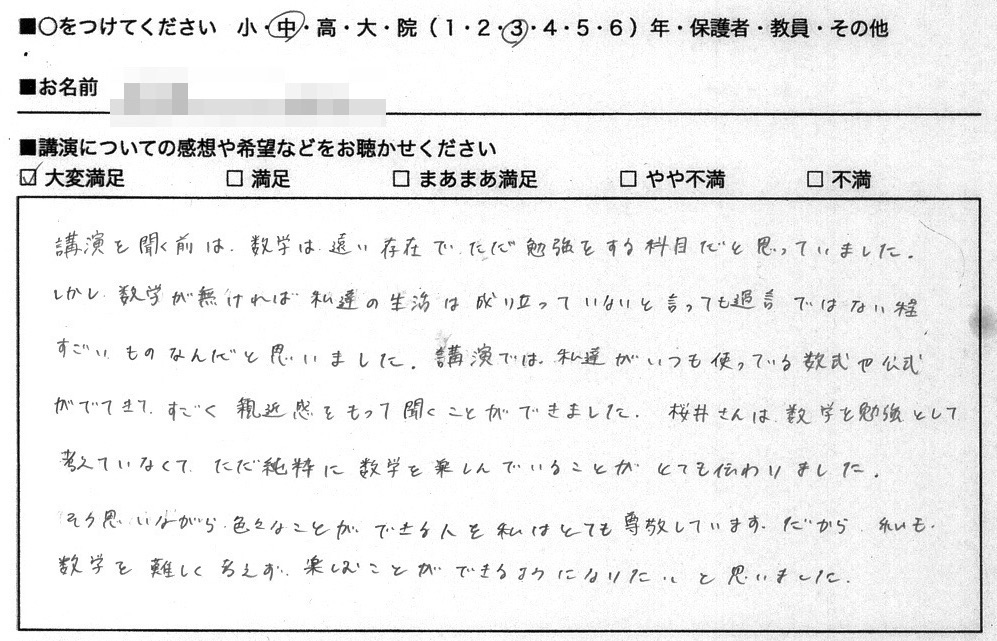 ■○をつけてください 小・中・高・大・院（1・2・3・4・5・6）年・保護者・教員・その他
■お名前
■講演についての感想や希望などをお聴かせください
☑ 大変満足 □ 満足 □ まあまあ満足 □ やや不満 □ 不満
講演を聞く前は、数学は遠い存在で、ただ勉強をする科目だと思っていました。
しかし、数学が無ければ私達の生活は成り立っていないと言っても過言ではない程
すごいものなんだと思いました。講演では、私達がいつも使っている数式や公式
がでてきて、すごく親近感をもって聞くことができました。桜井さんは、数学を勉強として
考えていなくて、ただ純粋に数学を楽しんでいることがとても伝わりました。
そう思いながら、色々なことができる人を私はとても尊敬しています。だから、私も、
数学を難しく考えず、楽しむことができるようになりたいと思いました。